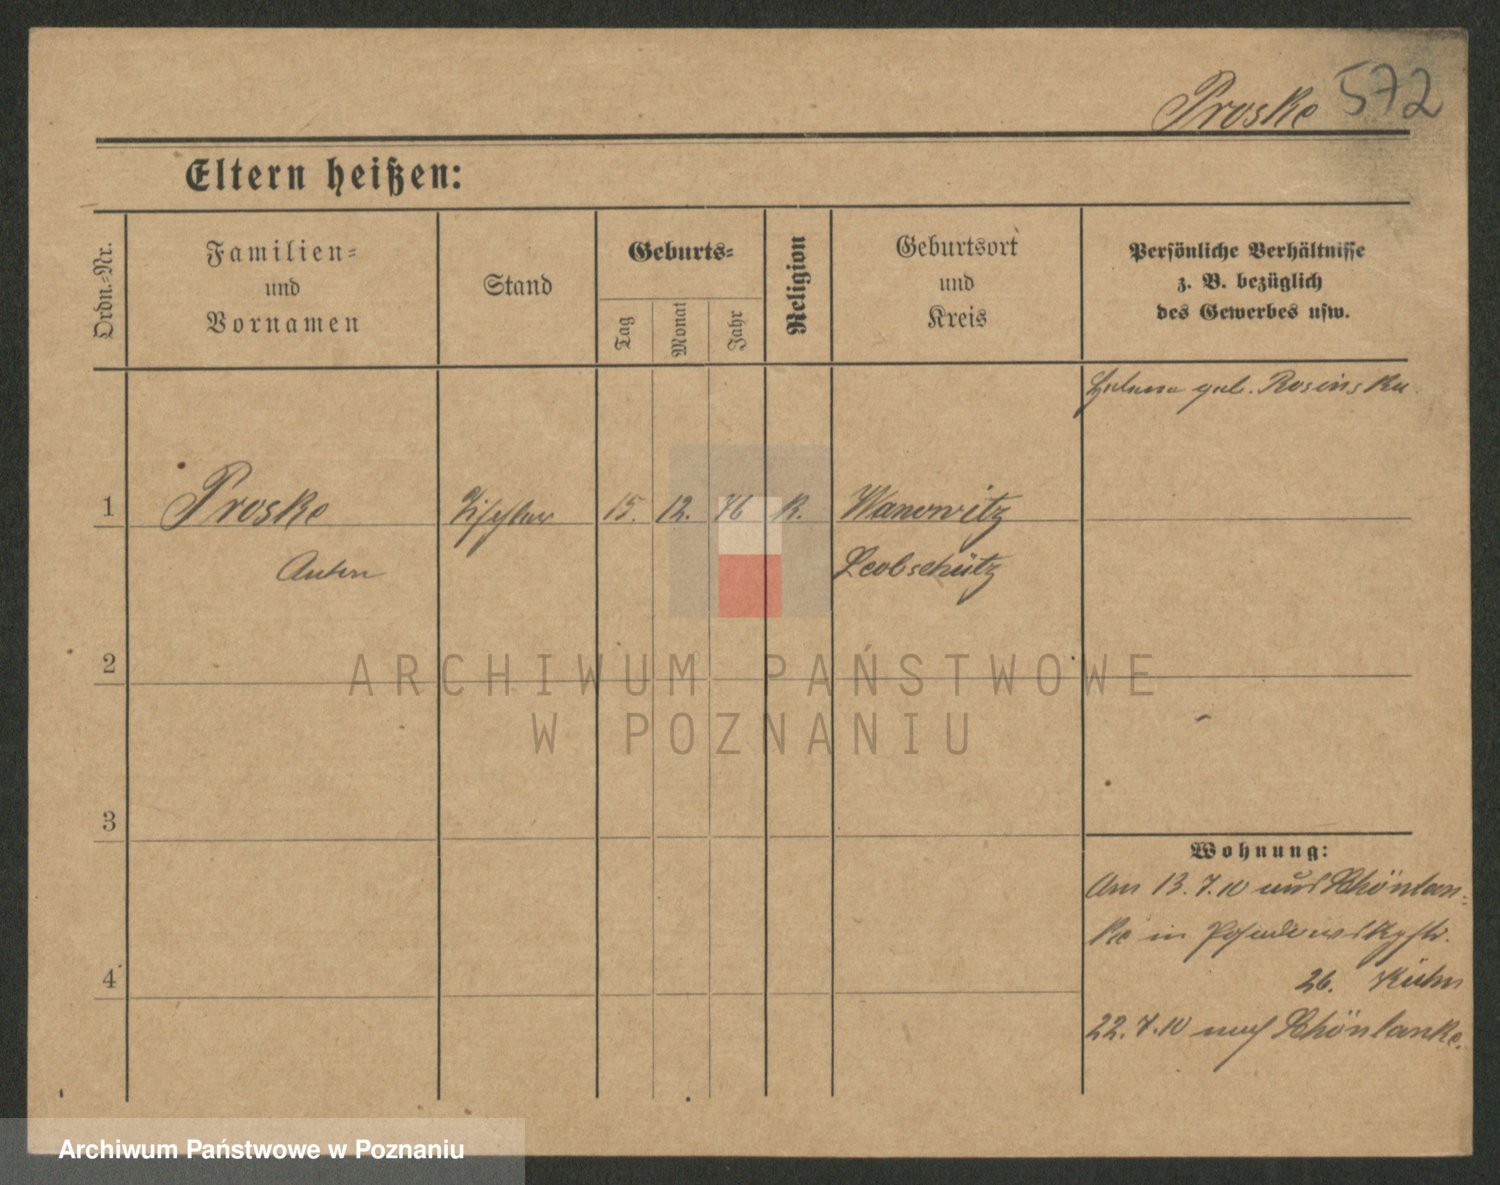 Proske 572
Eltern heißen:
Ordn.=Nr.
Familien=
und
Vornamen
Stand
Geburts=
Tag
Monat
Jahr
Religion
Geburtsort
und
Kreis
Persönliche Verhältnisse
z. B. bezüglich
des Gewerbes usw.
geb. Rosinska
1 Proske Tischler 15. 12. 76 K. Wanowitz
Anton Leobschütz
2
ARCHIWUM PAŃSTWOWE
W POZNANIU
3
Wohnung:
Am 13.7.10 aus Schönlan=
ke in Posadowskystr.
4
26. Kühn
22.7.10 nach Schönlanke.
Archiwum Państwowe w Poznaniu